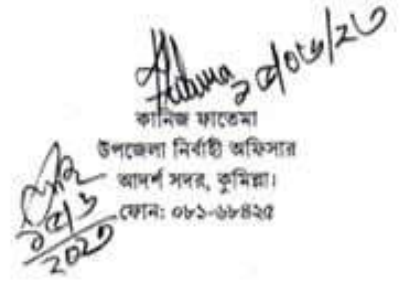 ২৫/০৬/২৩
কানিজ ফাতেমা
উপজেলা নির্বাহী অফিসার
আদর্শ সদর, কুমিল্লা।
ফোন: ০৮১-৬৮৪২৫
২৫/৬
২০২৩